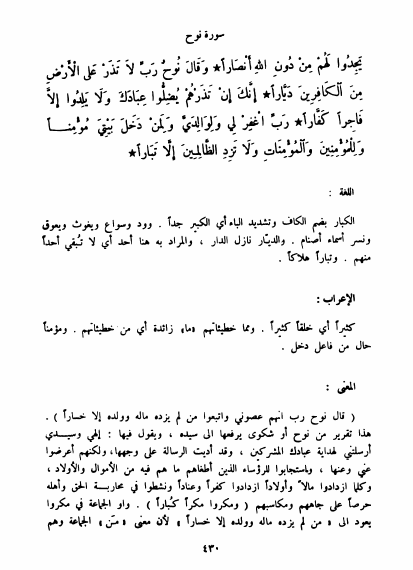 سورة نوح
يَجِدُوا لَهُمْ مِنْ دُونِ اللهِ أَنْصَاراً * وَقَالَ نُوحٌ رَبِّ لَا تَذَرْ عَلَى الْأَرْضِ
مِنَ الْكَافِرِينَ دَيَّاراً * إِنَّكَ إِنْ تَذَرْهُمْ يُضِلُّوا عِبَادَكَ وَلَا يَلِدُوا إِلَّا
فَاجِراً كَفَّاراً * رَبِّ اغْفِرْ لِي وَلِوَالِدَيَّ وَلِمَنْ دَخَلَ بَيْتِيَ مُؤْمِنـــاً
وَلِلْمُؤْمِنِينَ وَالْمُؤْمِنَاتِ وَلَا تَزِدِ الظَّالِمِينَ إِلَّا تَبَاراً *
اللغة :
الكبار بضم الكاف وتشديد الباء أي الكبير جداً . وود وسواع ويغوث ويعوق
ونسر أسماء أصنام . والديّار نازل الدار ، والمراد به هنا أحد أي لا تُبقي أحداً
منهم . وتباراً هلاكاً .
الإعراب :
كثيراً أي خلقاً كثيراً . ومما خطيئاتهم «ما» زائدة أي من خطيئاتهم . ومؤمناً
حال من فاعل دخل .
المعنى :
( قال نوح رب انهم عصوني واتبعوا من لم يزده ماله وولده إلا خساراً ) .
هذا تقرير من نوح أو شكوى يرفعها الى سيده ، ويقول فيها : إلهي وسيـــدي
أرسلتني لهداية عبادك المشركين ، وقد أديت الرسالة على وجهها، ولكنهم أعرضوا
عني وعنها ، واستجابوا للرؤساء الذين أطغاهم ما هم فيه من الأموال والأولاد ،
وكلما ازدادوا مالاً وأولاداً ازدادوا كفراً وعناداً ونشطوا في محاربة الحق وأهله
حرصاً على جاههم ومكاسبهم ( ومكروا مكراً كُبّاراً ) . واو الجماعة في مكروا
يعود الى « من لم يزده ماله وولده إلا خساراً » لأن معنى «مَن» الجماعة وهم
٤٣٠